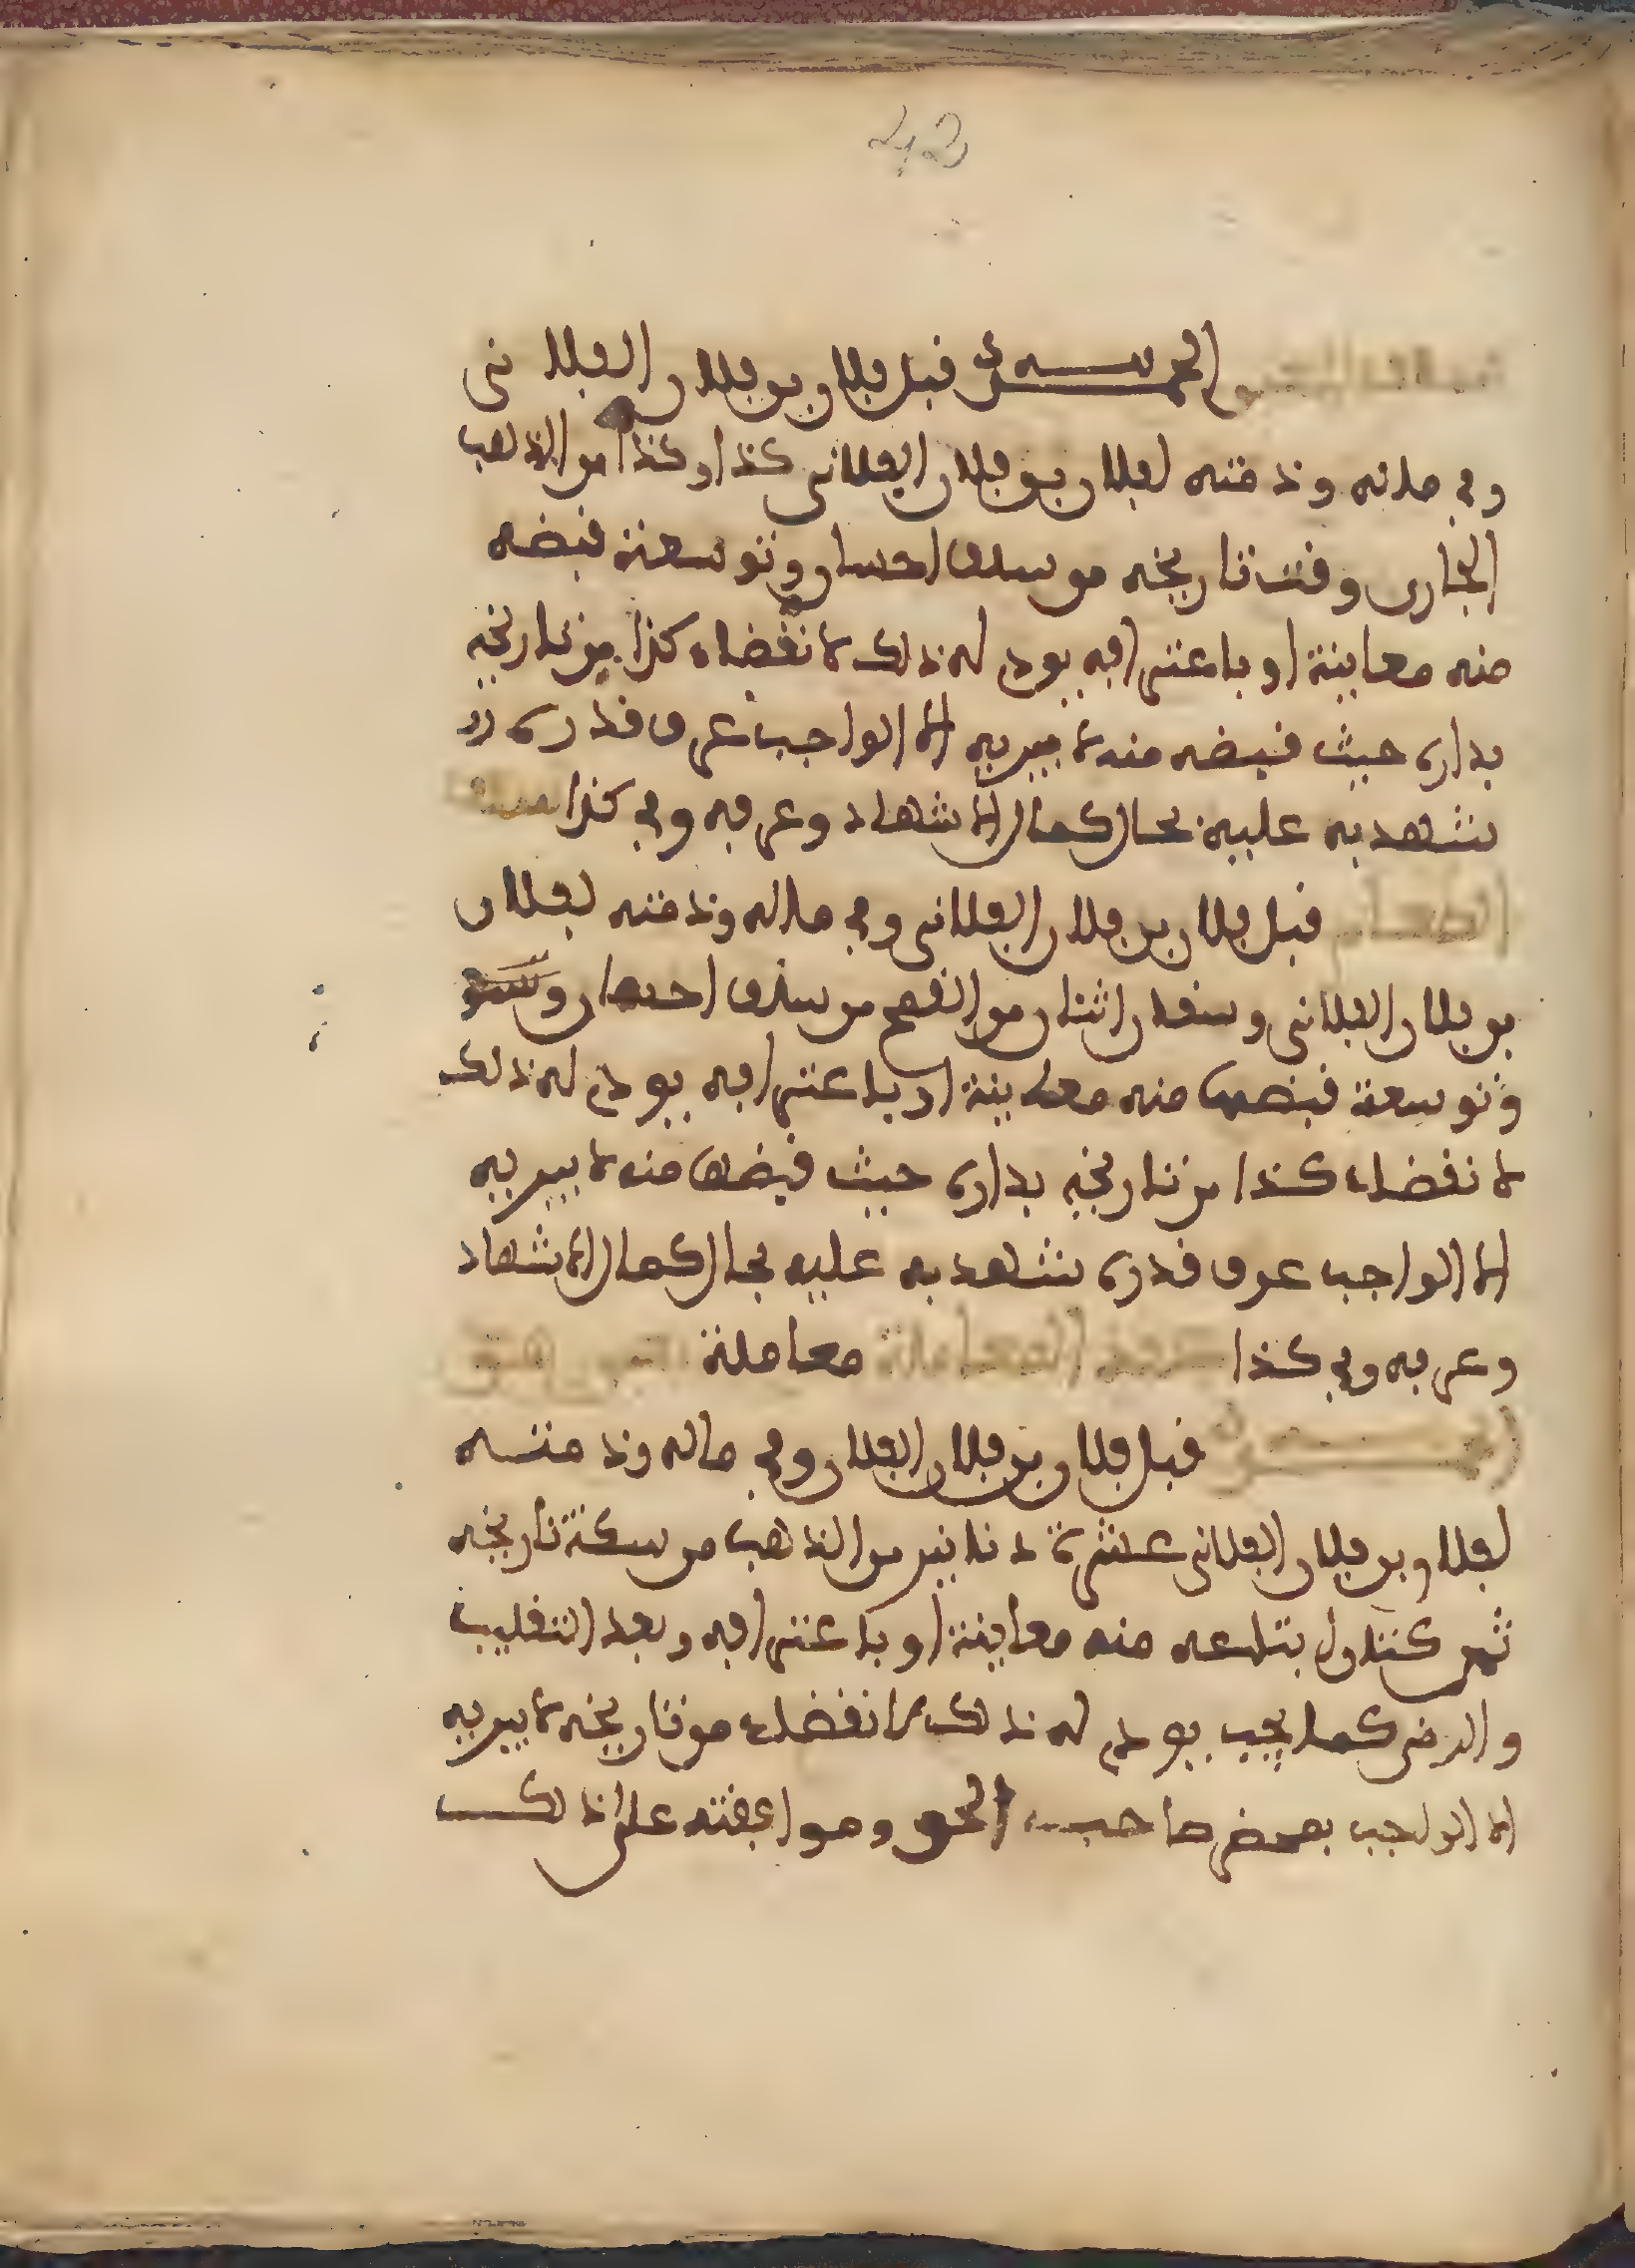 42
الحمد لله قبل فلان بن فلان الفلاني
وفي ماله وذمته لفلان بن فلان الفلاني كذا وكذا من الذهب
الجاري وقت تاريخه من سلف احسان وتوسعة قبضه
منه معاينة او باعترافه يودي له ذلك لانقضاء كذا من تاريخه
بداره حيث قبضه منه لا يبريه الا الواجب عرف قدره
شهد به عليه بحال كمال الاشهاد وعرفه وفي كذا
الطعام قبل فلان بن فلان الفلاني وفي ماله وذمته لفلان
بن فلان الفلاني وسقان اثنان من القمح من سلف احسان
وتوسعة قبضها منه معاينة او باعترافه يودي له ذلك
لانقضاء كذا من تاريخه بداره حيث قبضها منه لا يبريه
الا الواجب عرف قدره شهد به عليه بحال كمال الاشهاد
وعرفه وفي كذا المعاملة معاملة
الحمد لله قبل فلان بن فلان الفلان وفي ماله وذمته
لفلان بن فلان الفلاني عشرة دنانير من الذهب من سكة تاريخه
ثمن كتان ابتاعه منه معاينة او باعترافه وبعد التقليب
والرضى كما يجب يودي له ذلك لانقضاء من تاريخه لا يبريه
الا الواجب بمحضر صاحب الحق وموافقته على ذلك